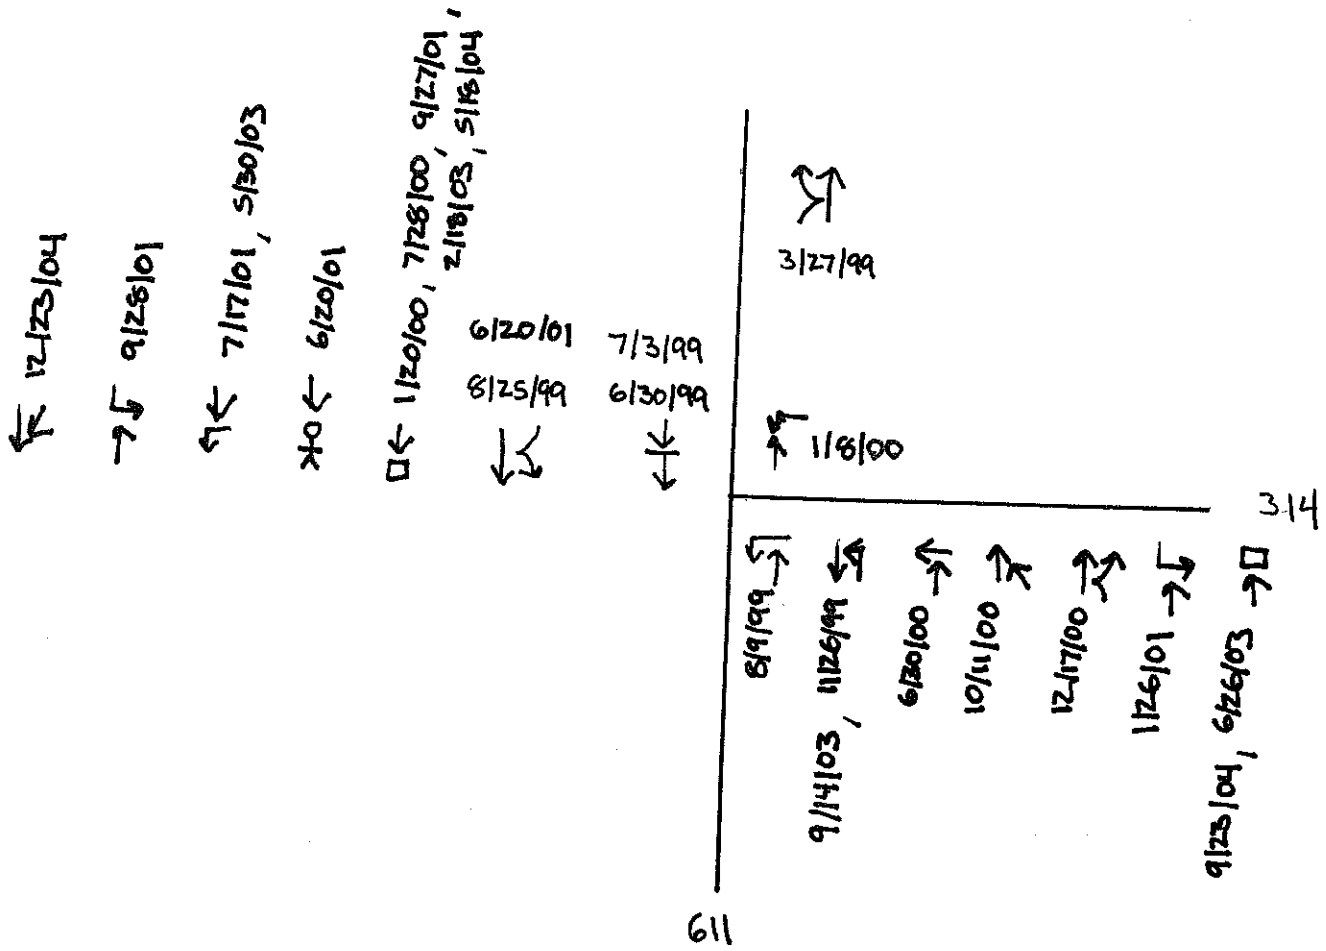 12/23/04
9/28/01
7/17/01, 5/30/03
6/20/01
1/20/00, 7/28/00, 9/27/01,
2/18/03, 5/18/04
6/20/01
8/25/99
7/3/99
6/30/99
3/27/99
1/8/00
314
8/9/99
9/14/03, 11/26/99
6/30/00
10/11/00
12/17/00
1/26/01
9/23/04, 6/26/03
611